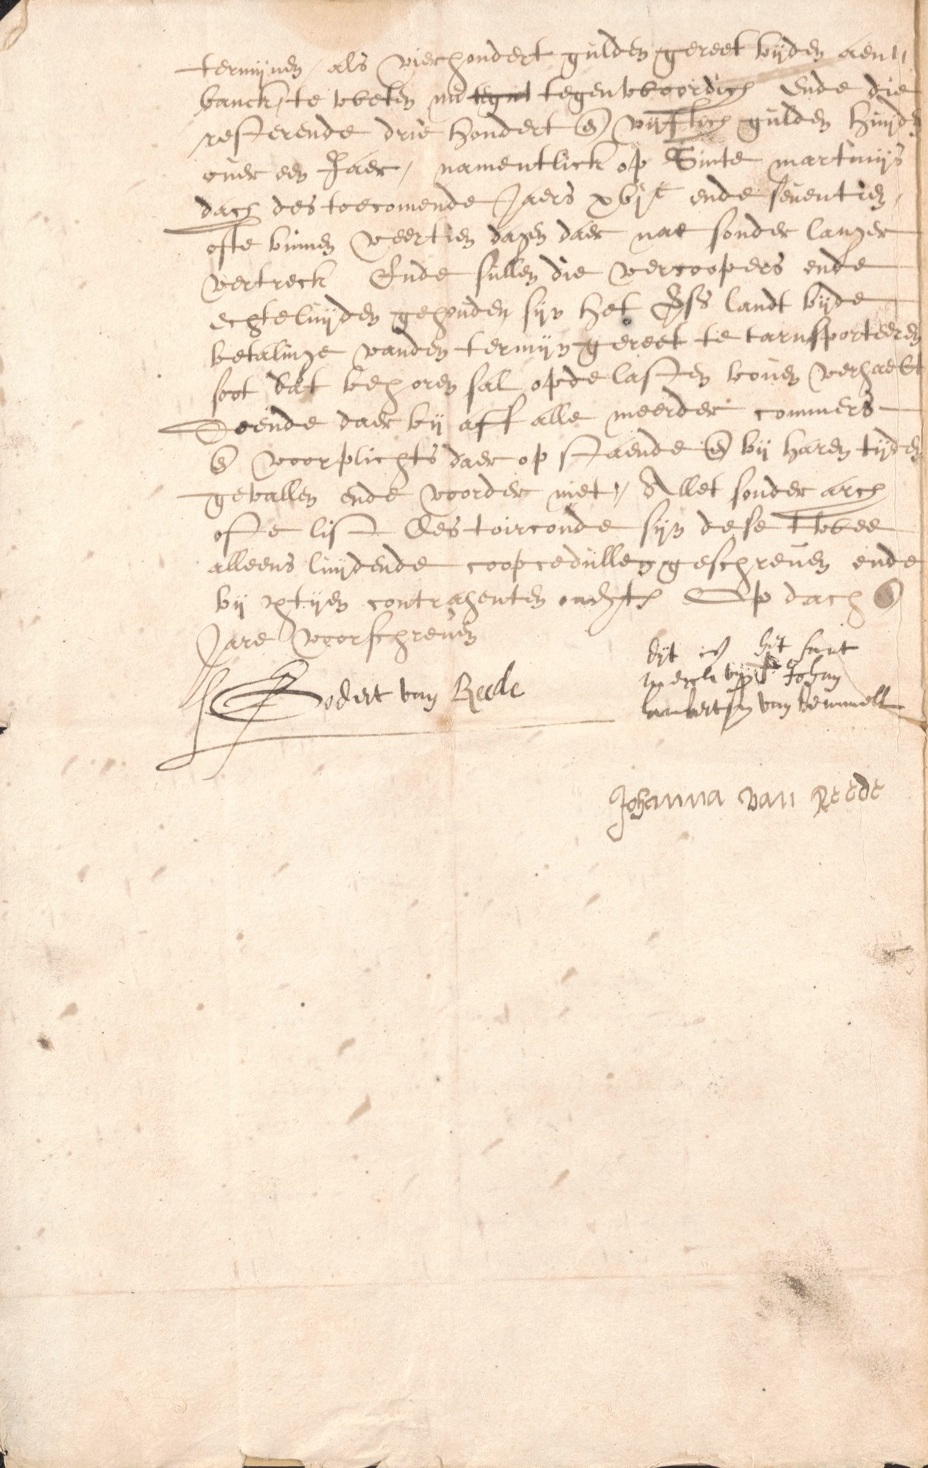 termijnen, als vierhondert gulden gereet bijden aen„
banck, te weten nu tegenwoordich Ende die
resterende drie hondert en vijftich gulden huijden
over een Jaer, namentlick op Sinte martinijs
dach des toecomende Jaers xvjC ende seventien,
ofte binnen veertien dagen daer nae sonder langer
vertreck Ende sullen die vercoopers ende
echteluijden gehouden sijn het landt bijde
betalinge vanden termijn gereet te tarnsporteeren
soot dat behoren sal opde lasten boven verhaelt
Doende daer bij aff alle meerder commers
en voorplichts daer op staende en bij haren tijden
gevallen ende voorder niet„ Allet sonder arch
ofte list Des toirconde sijn dese twee
alleens luijdende coopcedullen geschreven ende
bij contrahenten Op dach en
Jare voorschreven
Godert van Reede
dijt is hijt hant
merck Johan
lambertsen van bemmell
Johanna van Reede